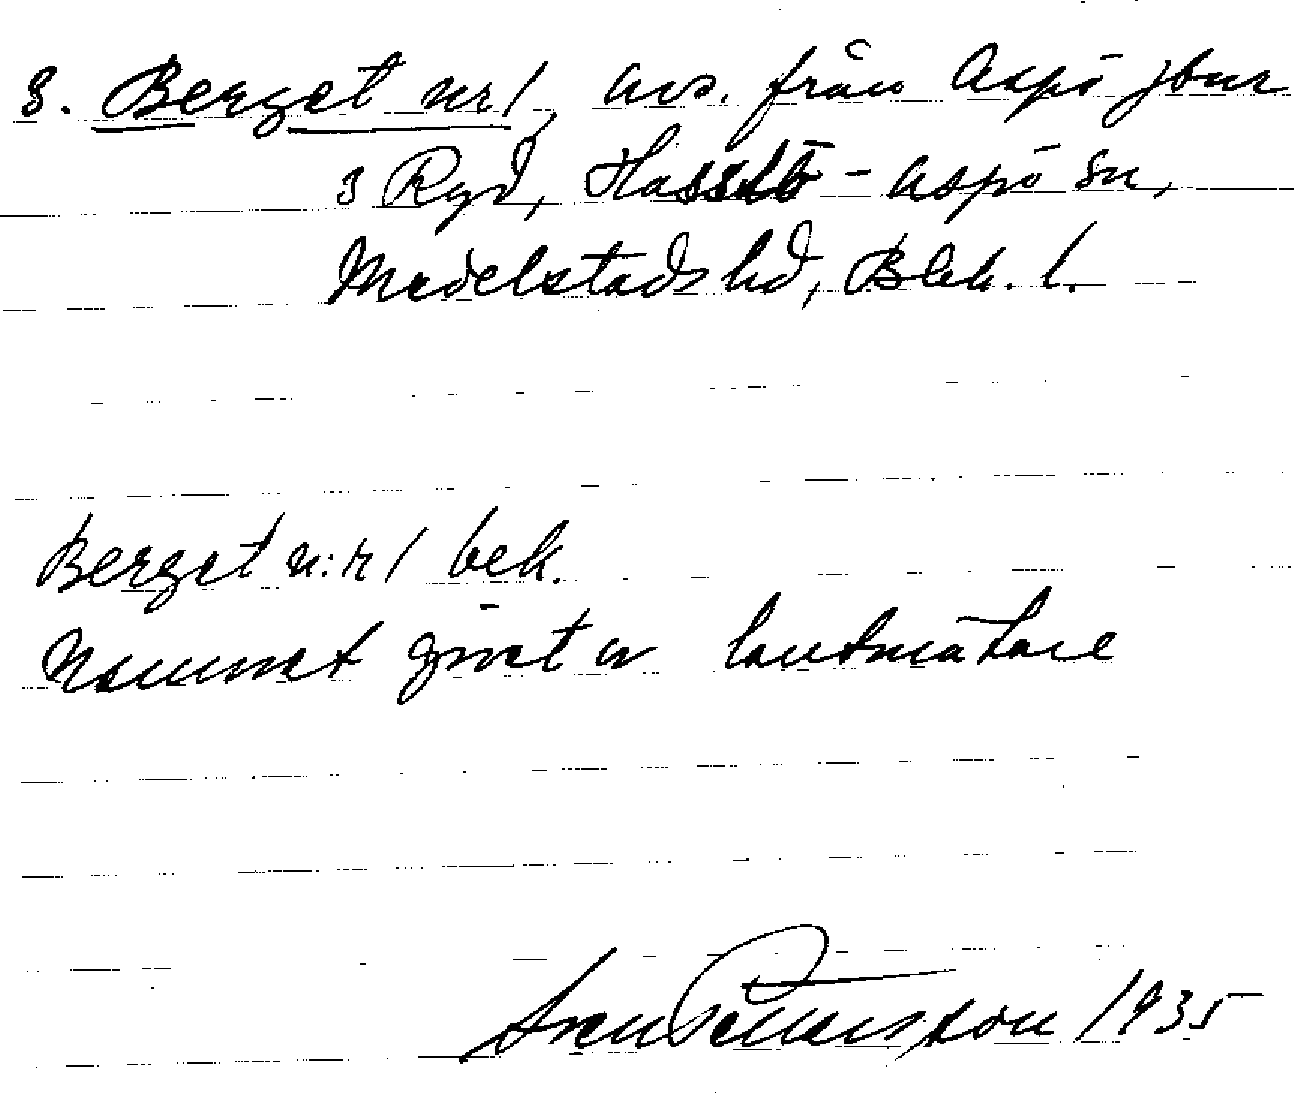 3. Berget nr 1, avs. från Aspö jbnr
3 Ryd, Hasslö - Aspö sn,
Medelstads hd, Blek. l.
Berget n:r 1 bek.
Namnet givet av lantmätare
Sven Pettersson 1935